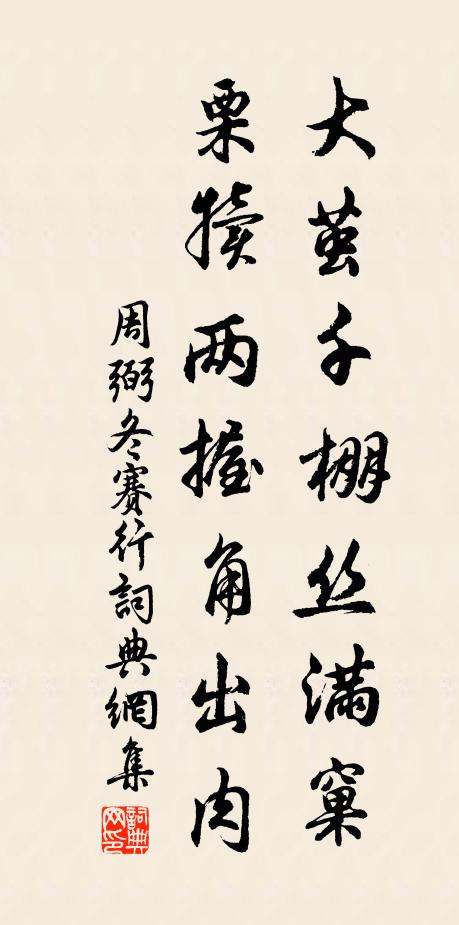 大茧千棚丝满窠
栗犊两握角出肉
周弼冬赛行詞典網集
詞典网印